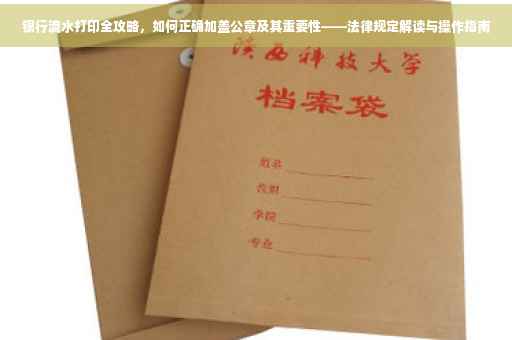 银行流水打印全攻略，如何正确加盖公章及其重要性——法律规定解读与操作指南
陕西科技大学
档案袋
姓名
学院
专业